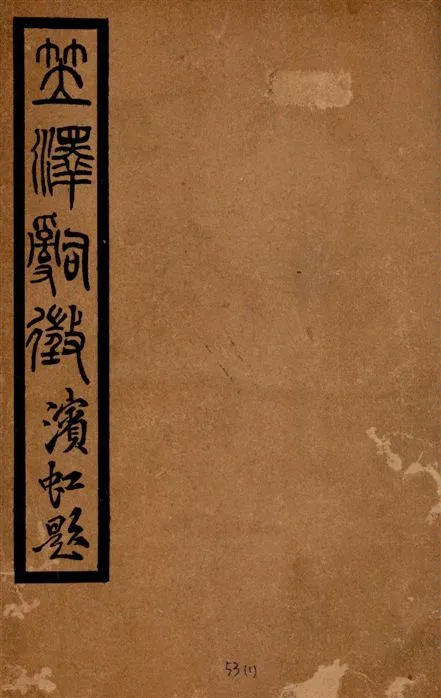 笠澤詞徵濱虹題
53(1)